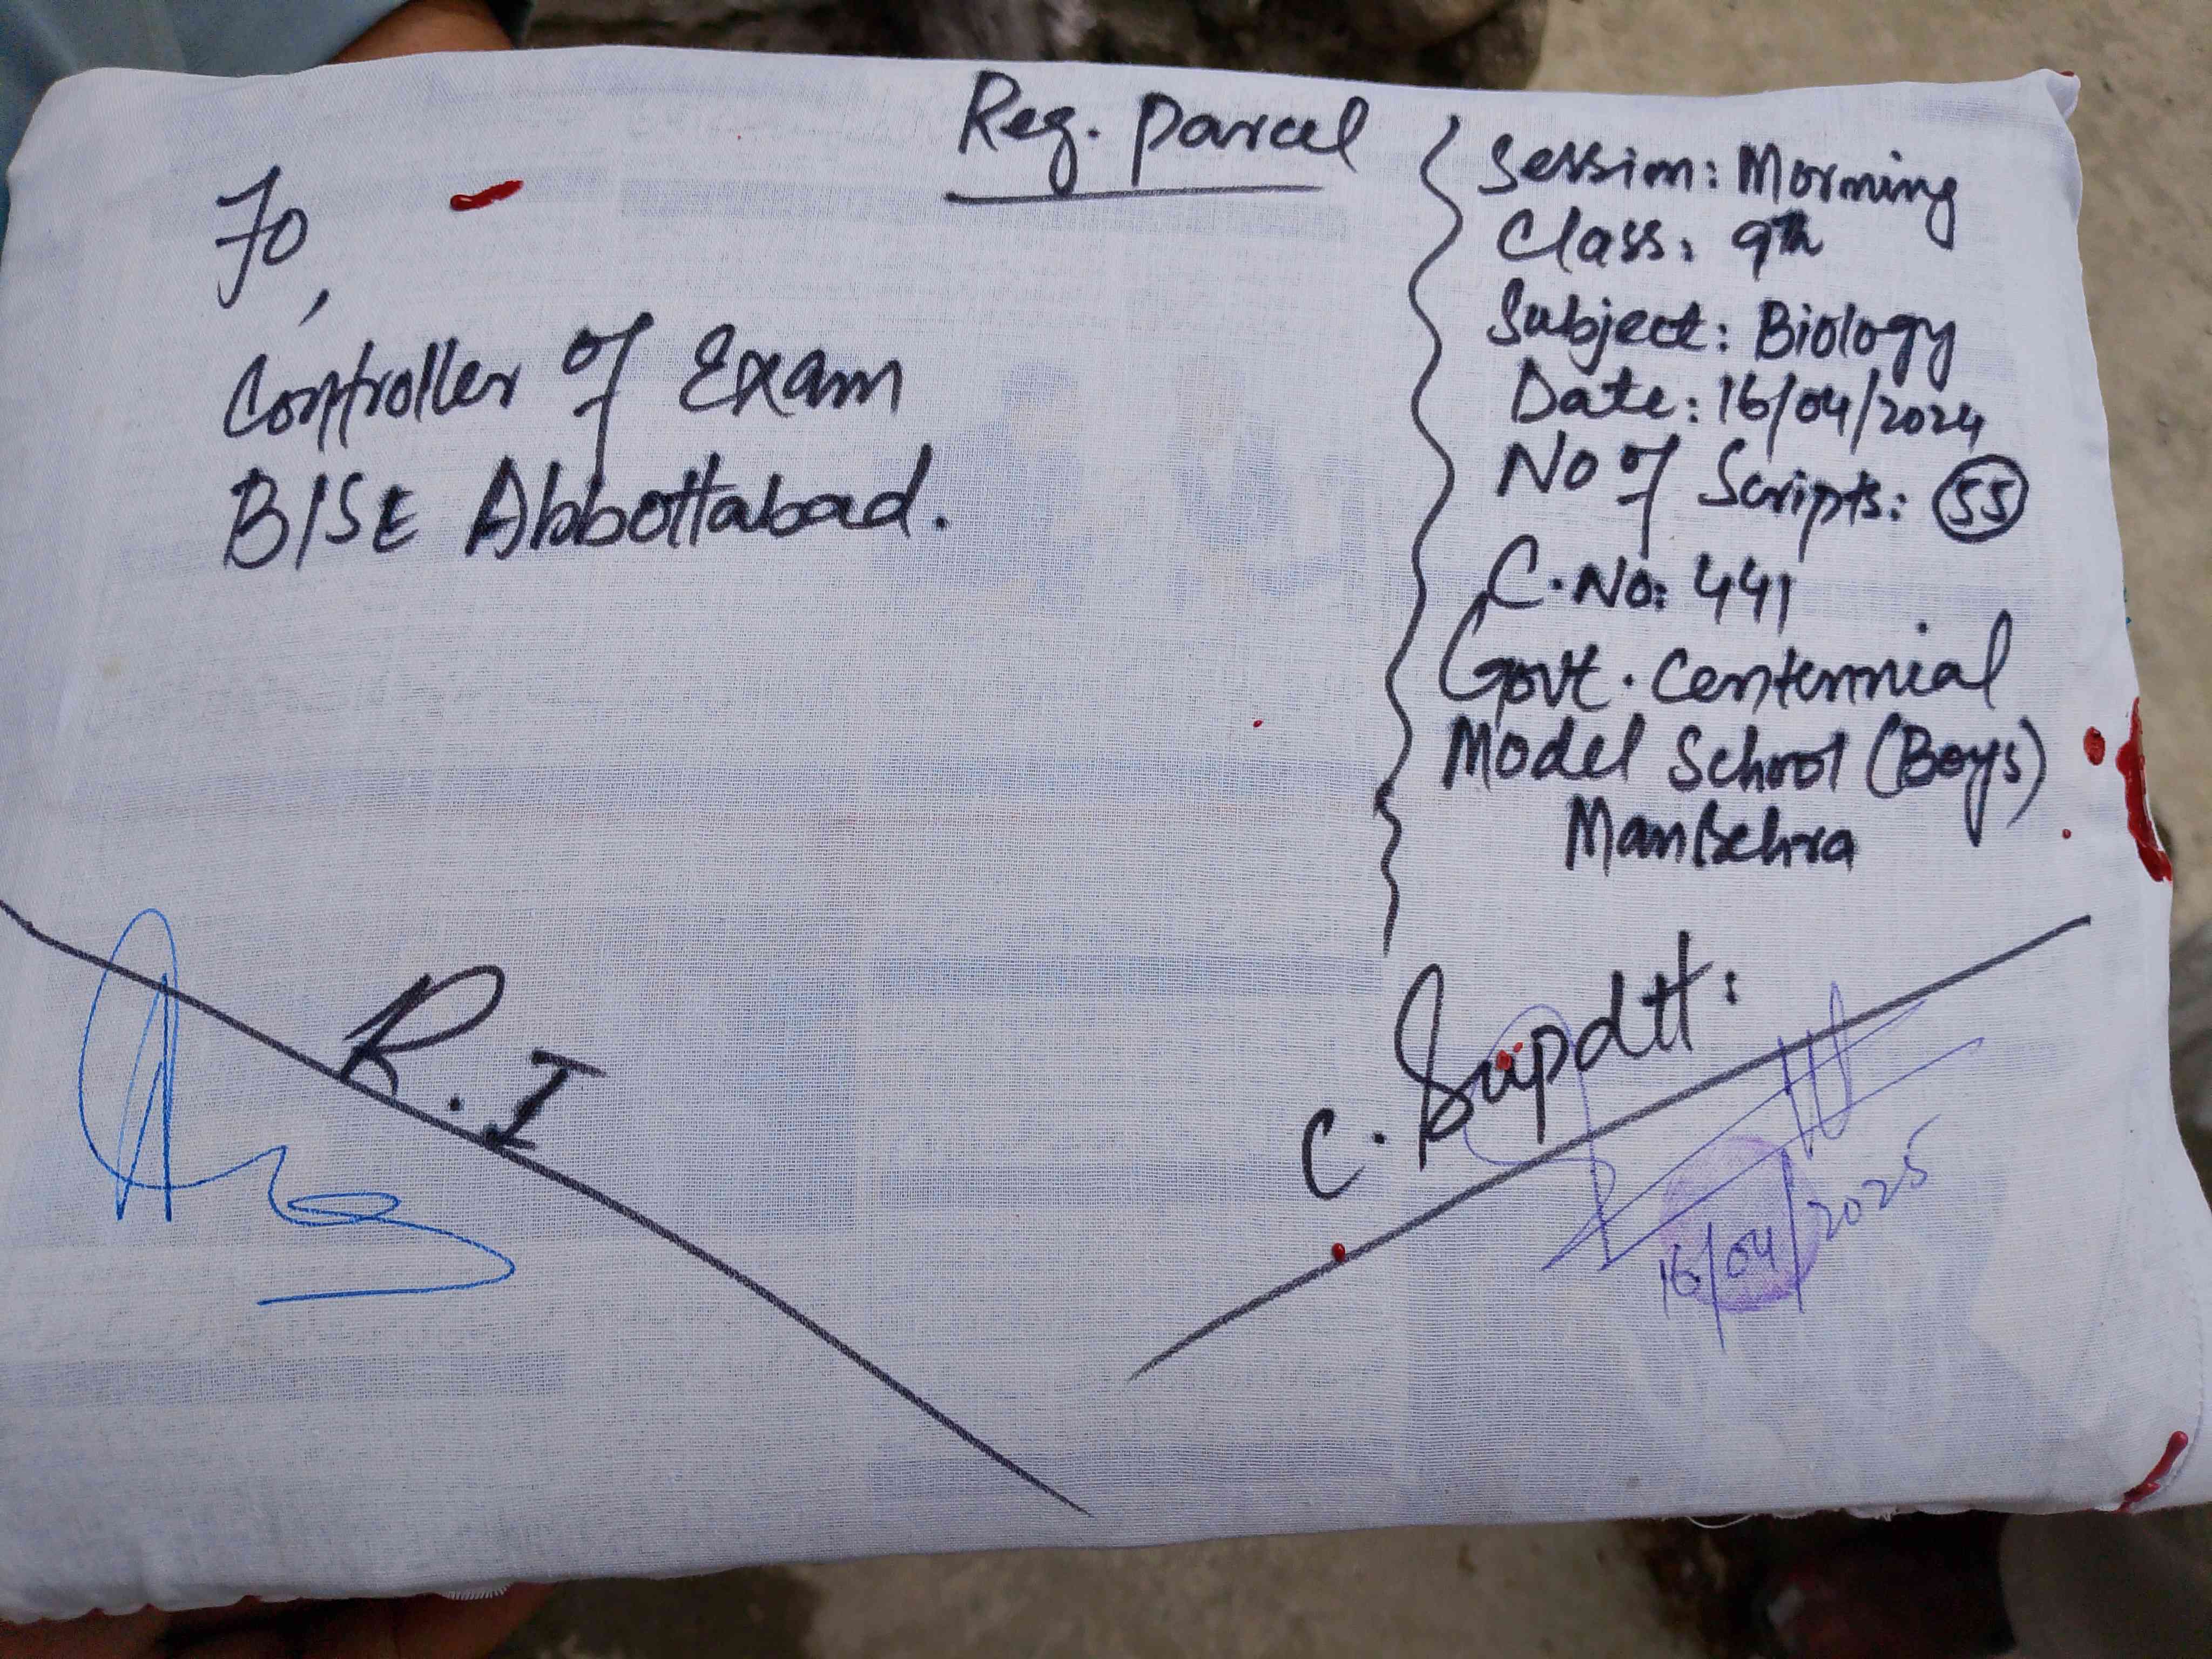 Reg. Parcel
To,
Controller of Exam
BISE Abbottabad.
Session: Morning
Class: 9th
Subject: Biology
Date: 16/04/2024
No of Scripts: 55
C.No: 441
Govt. Centennial
Model School (Boys)
Mansehra
R.I
C. Supdtt:
16/04/2025